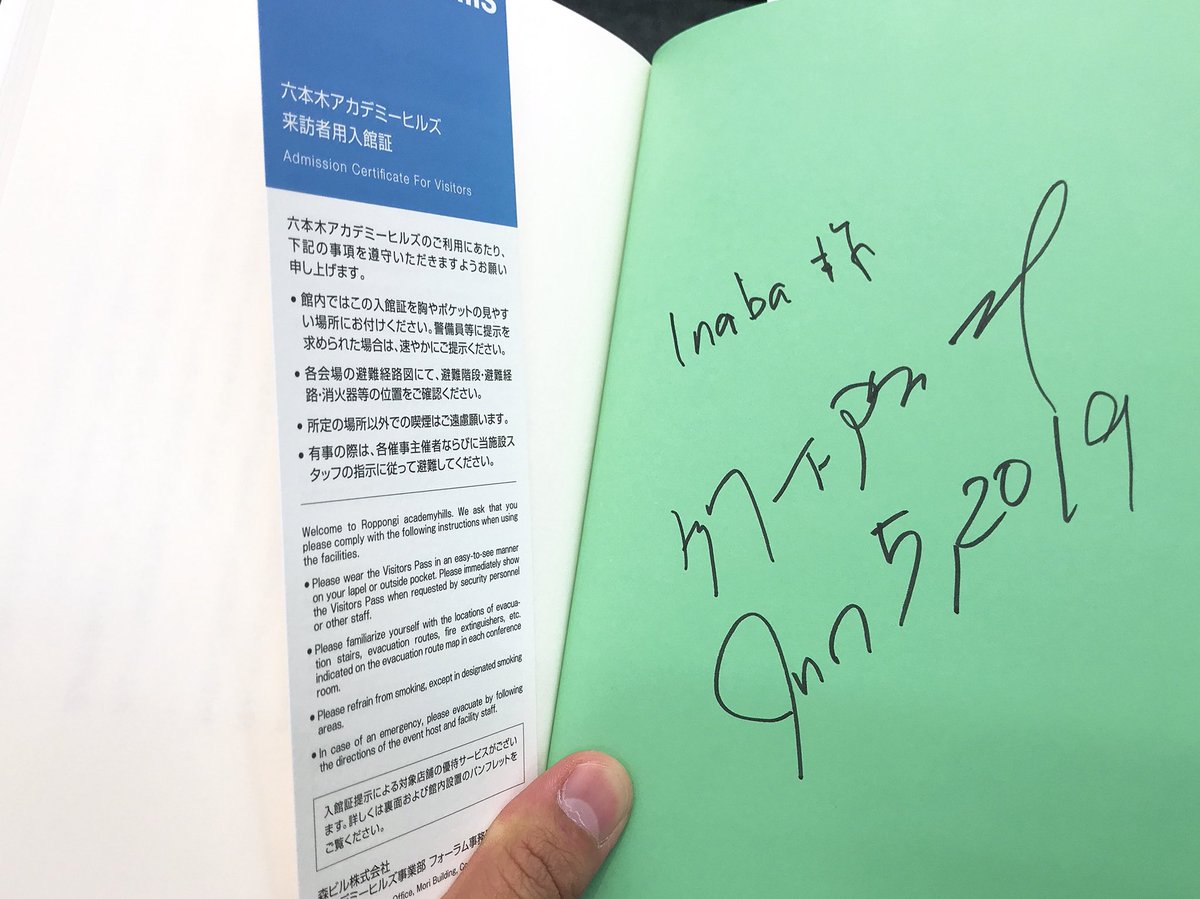 六本木アカデミーヒルズ
来訪者用入館証
Admission Certificate For Visitors
六本木アカデミーヒルズのご利用にあたり、
下記の事項を遵守いただきますようお願い
申し上げます。
• 館内ではこの入館証を胸やポケットの見やす
い場所にお付けください。警備員等に提示を
求められた場合は、速やかにご提示ください。
• 各会場の避難経路図にて、避難階段・避難経
路・消火器等の位置をご確認ください。
• 所定の場所以外での喫煙はご遠慮願います。
• 有事の際は、各催事主催者ならびに当施設ス
タッフの指示に従って避難してください。
Welcome to Roppongi academyhills. We ask that you
please comply with the following instructions when using
the facilities.
• Please wear the Visitors Pass in an easy-to-see manner
on your lapel or outside pocket. Please immediately show
the Visitors Pass when requested by security personnel
or other staff.
• Please familiarize yourself with the locations of evacua-
tion stairs, evacuation routes, fire extinguishers, etc.
indicated on the evacuation route map in each conference
room.
• Please refrain from smoking, except in designated smoking
areas.
• In case of an emergency, please evacuate by following
the directions of the event host and facility staff.
入館証提示による対象店舗の優待サービスがござい
ます。詳しくは裏面および館内設置のパンフレットを
ご覧ください。
森ビル株式会社
デミーヒルズ事業部 フォーラム事務
Office, Mori Building,
Inaba 様
Jun 5, 2019